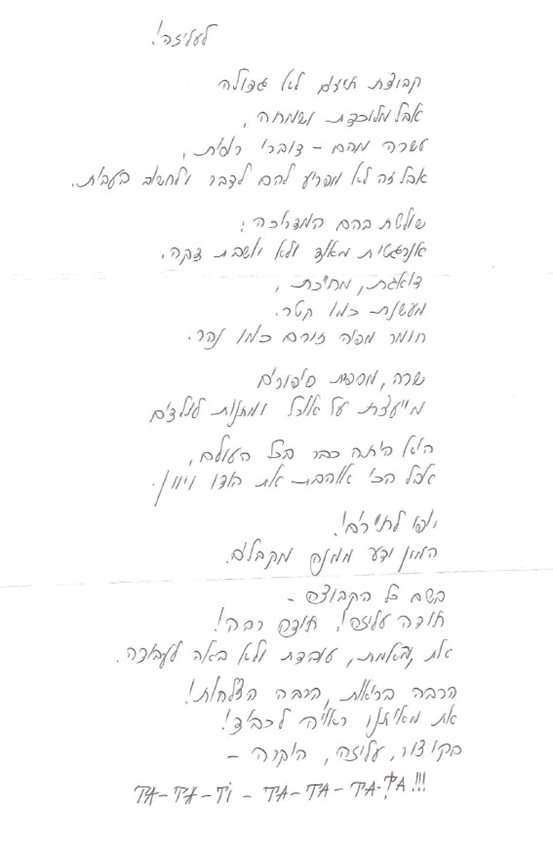 לעליזה!
קבוצת תיירים לא גדולה
אבל מלוכדת ושמחה,
עשרה מהם – דוברי רוסית,
אבל זה לא מפריע להם לדבר ולחשוב בעברית.
שולטת בהם המדריכה:
אנרגטית מאוד ולא יושבת דקה.
דואגת, מחייכת,
מעשנת כמו קטר.
חומר מפיה זורם כמו נהר.
שרה, מספרת סיפורים
מייעצת על אוכל ומתנות לילדים
היא היתה כבר בכל העולם,
אבל הכי אוהבת את הודו ויוון.
יופי לתיירים!
המון ידע ממנה מקבלים.
בשם כל הקבוצה –
תודה עליזה! תודה רבה!
את, באמת, עובדת ולא באה לעבודה.
הרבה בריאות, הרבה הצלחות!
את מאיתנו ראויה לכבוד!
בקיצור, עליזה, היקרה –
TA-TA-Ti - TA-TA-TA-TA!!!